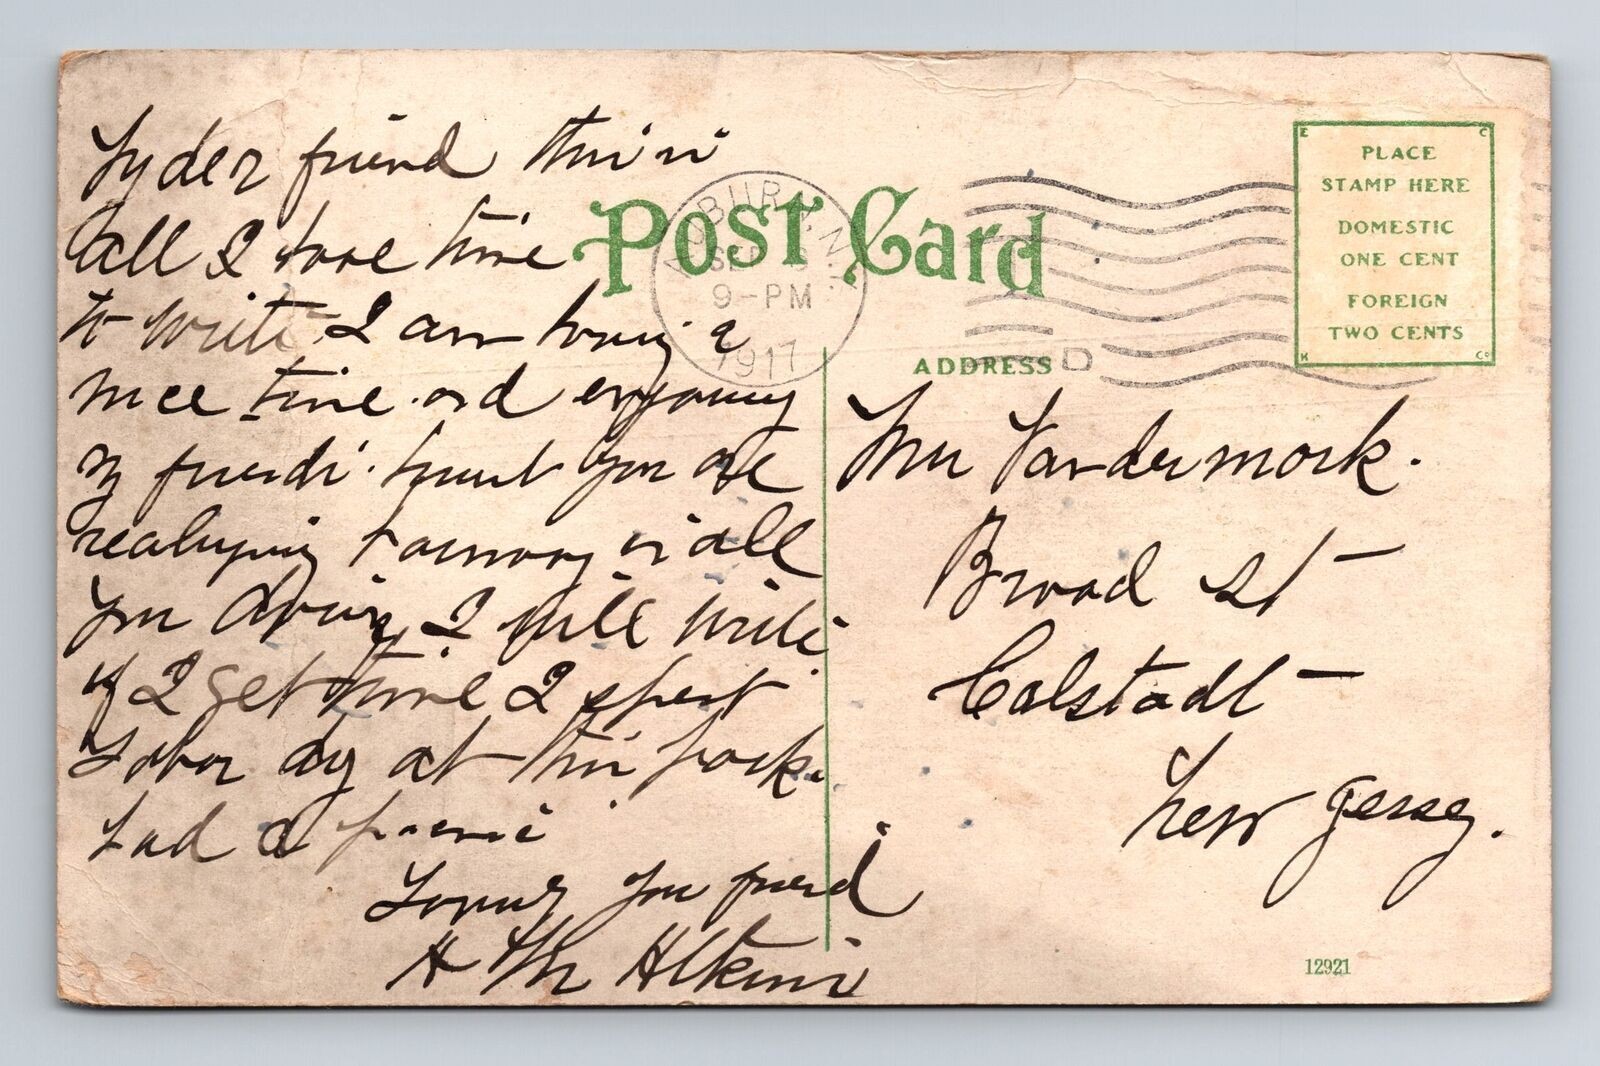 My der friend this is
all I have time
to write I am having a
nice time and enjoying
my friends. trust you are
you doing I will write
if I get time I spent
Labor dy at this park.
had a picnic
Loving you friend
H M Atkins
POST CARD
AUBURN, N.Y.
SEP
9-PM
1917
D
PLACE
STAMP HERE
DOMESTIC
ONE CENT
FOREIGN
TWO CENTS
E C
K Co
ADDRESS
Mr Vandermark.
Broad St
Calstadt
New Jersey.
12921